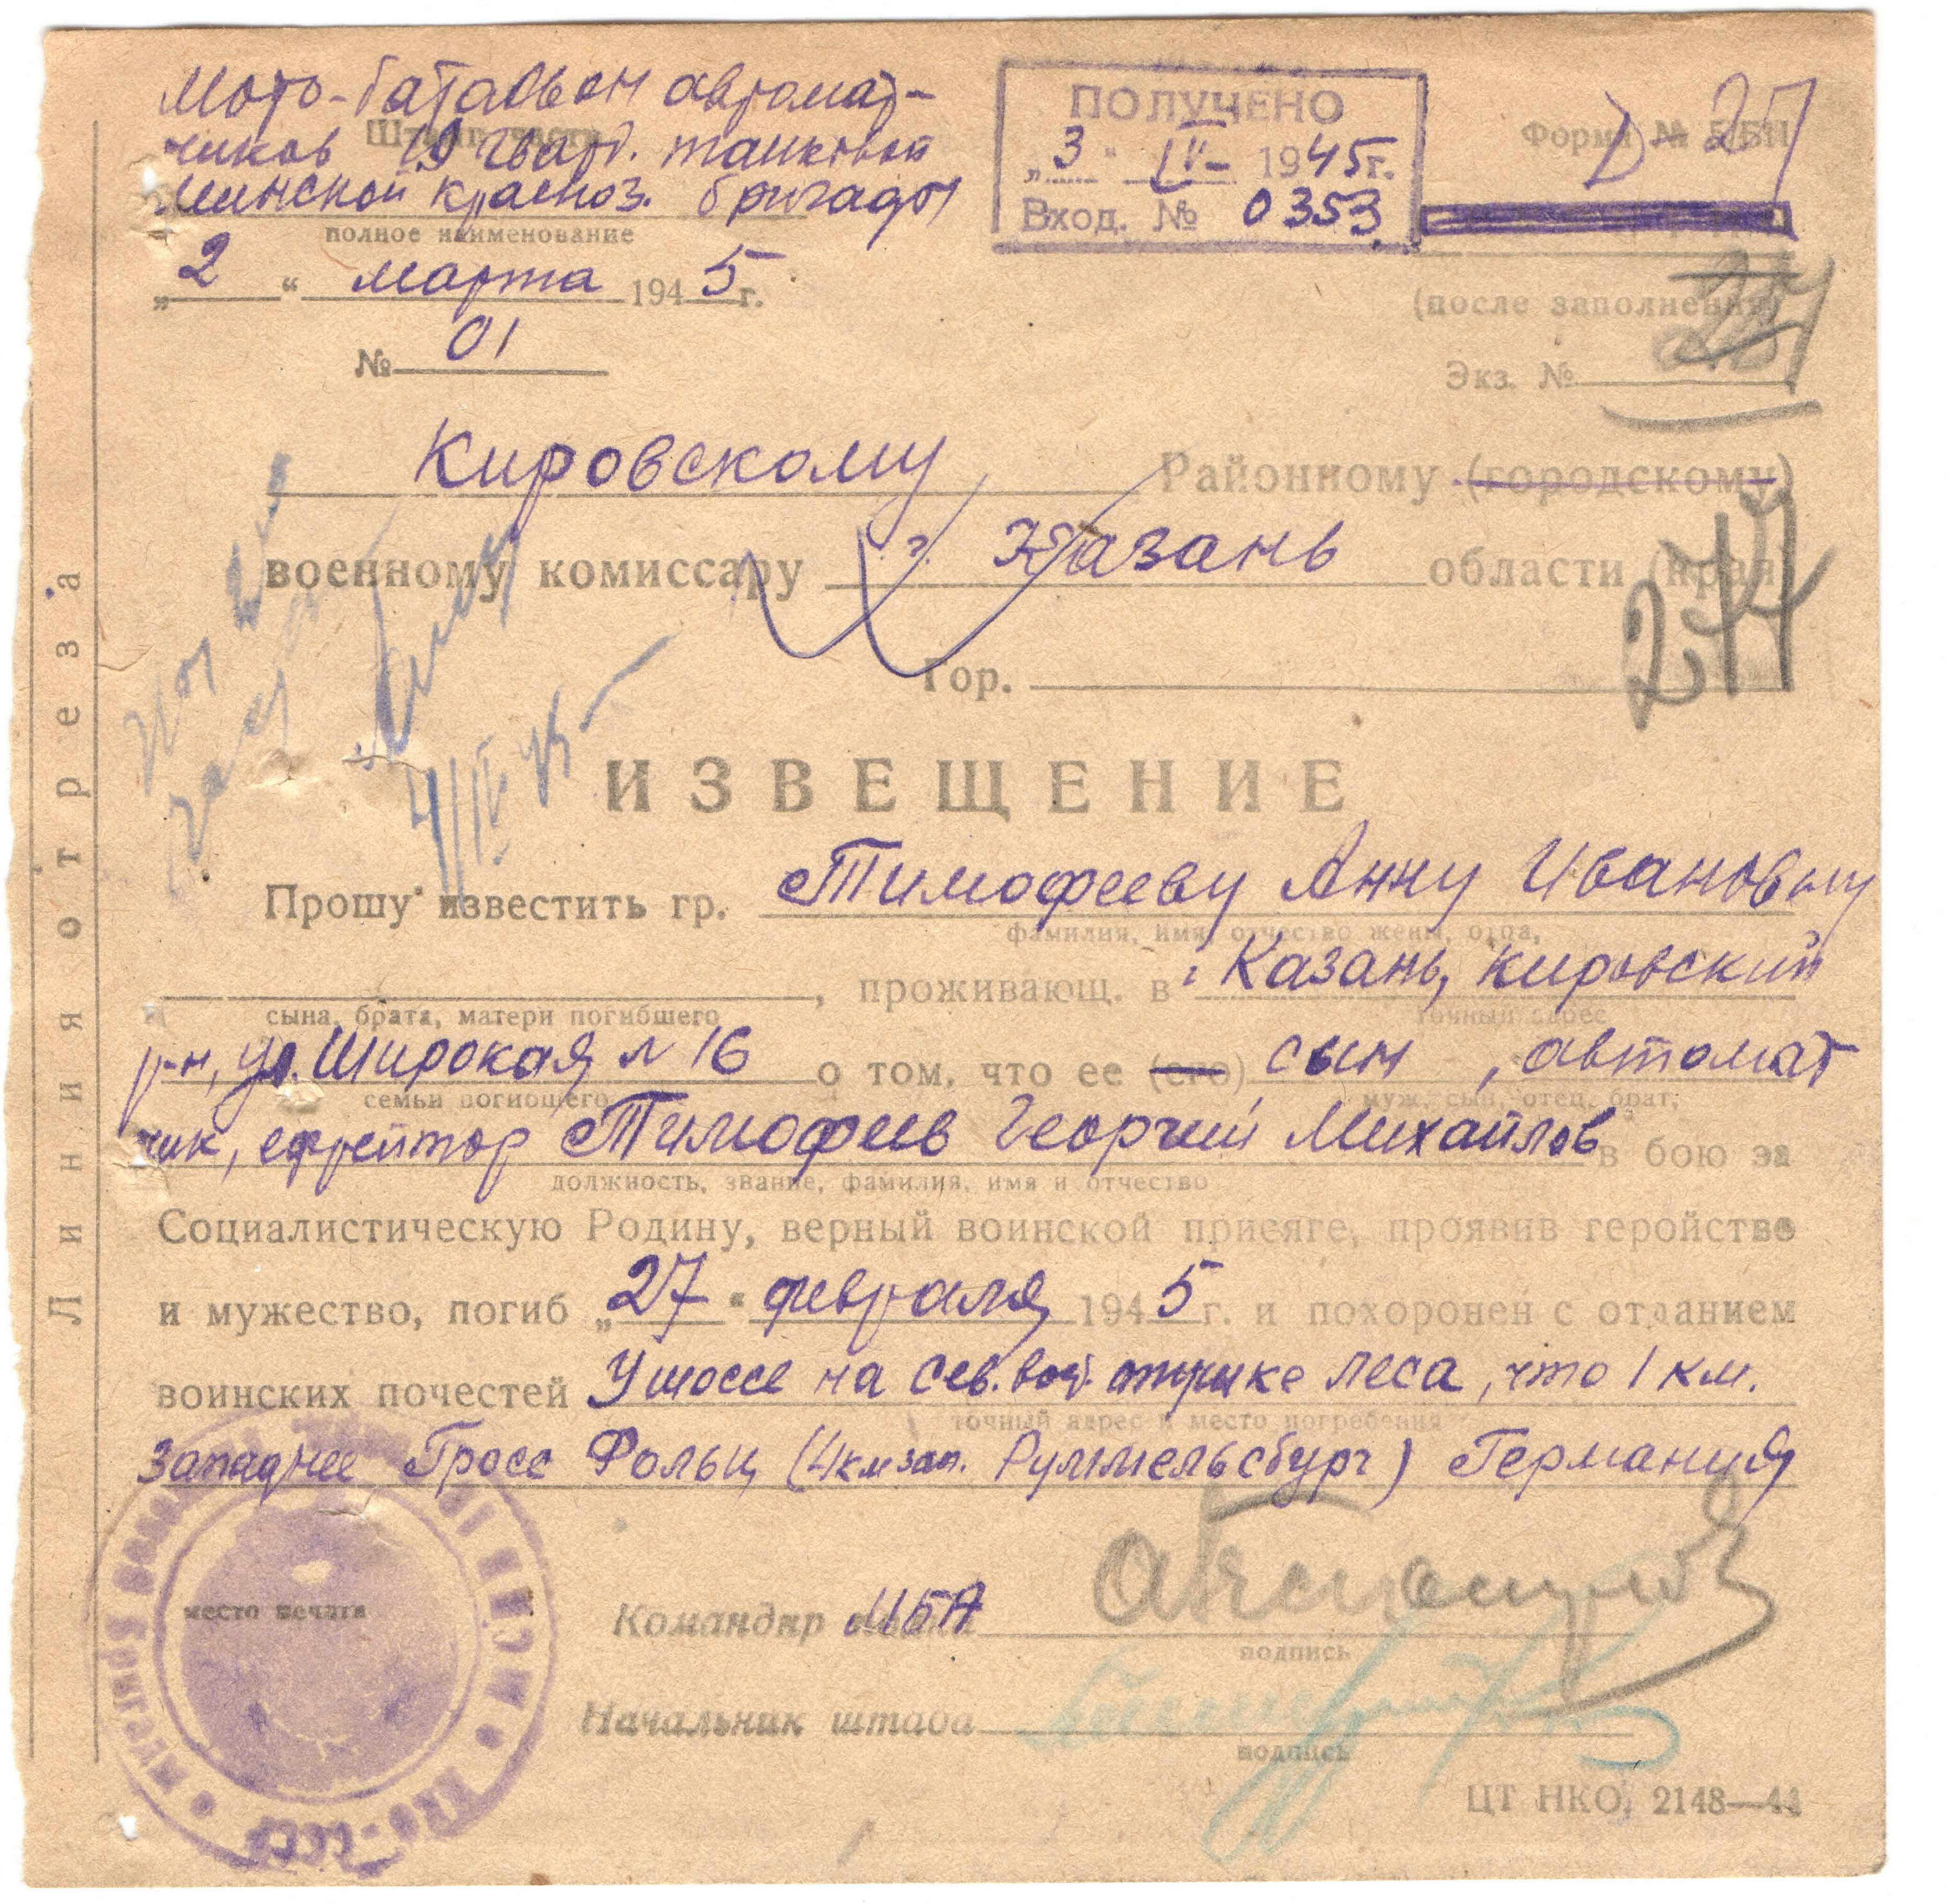 Мото-батальон автомат-
чиков 19 гвард. танковой
минской красноз. бригады
Штамп части
полное наименование
„2“ марта 1945 г.
№ 01
ПОЛУЧЕНО
„3“ IV- 1945г.
Вход. № 0353
Форма № Б/БП
27
(после заполнения)
Экз. №
Кировскому Районному (городскому)
военному комиссару г. Казань области (края)
244
Гор.
4/IV 45
ИЗВЕЩЕНИЕ
Прошу известить гр. Тимофееву Анну Ивановну
фамилия, имя, отчество жены, отца,
, проживающ. в г Казань, Кировский
сына, брата, матери погибшего точный адрес
р-н, ул. Широкая № 16 о том, что ее (его) сын, автомат
семьи погибшего муж, сын, отец, брат,
чик, ефрейтор Тимофеев Георгий Михайлов в бою за
должность, звание, фамилия, имя и отчество
Социалистическую Родину, верный воинской присяге, проявив геройство
и мужество, погиб „27“ февраля 1945 г. и похоронен с отданием
воинских почестей У шоссе на сев. вост. опушке леса, что 1 км.
точный адрес и место погребения
Западнее Гросс Фольц (4 км зап. Руммельсбург) Германия
место печати
НКО-СССР
Командир МБА
подпись
Начальник штаба
подпись
ЦТ НКО, 2148—44
Линия отреза